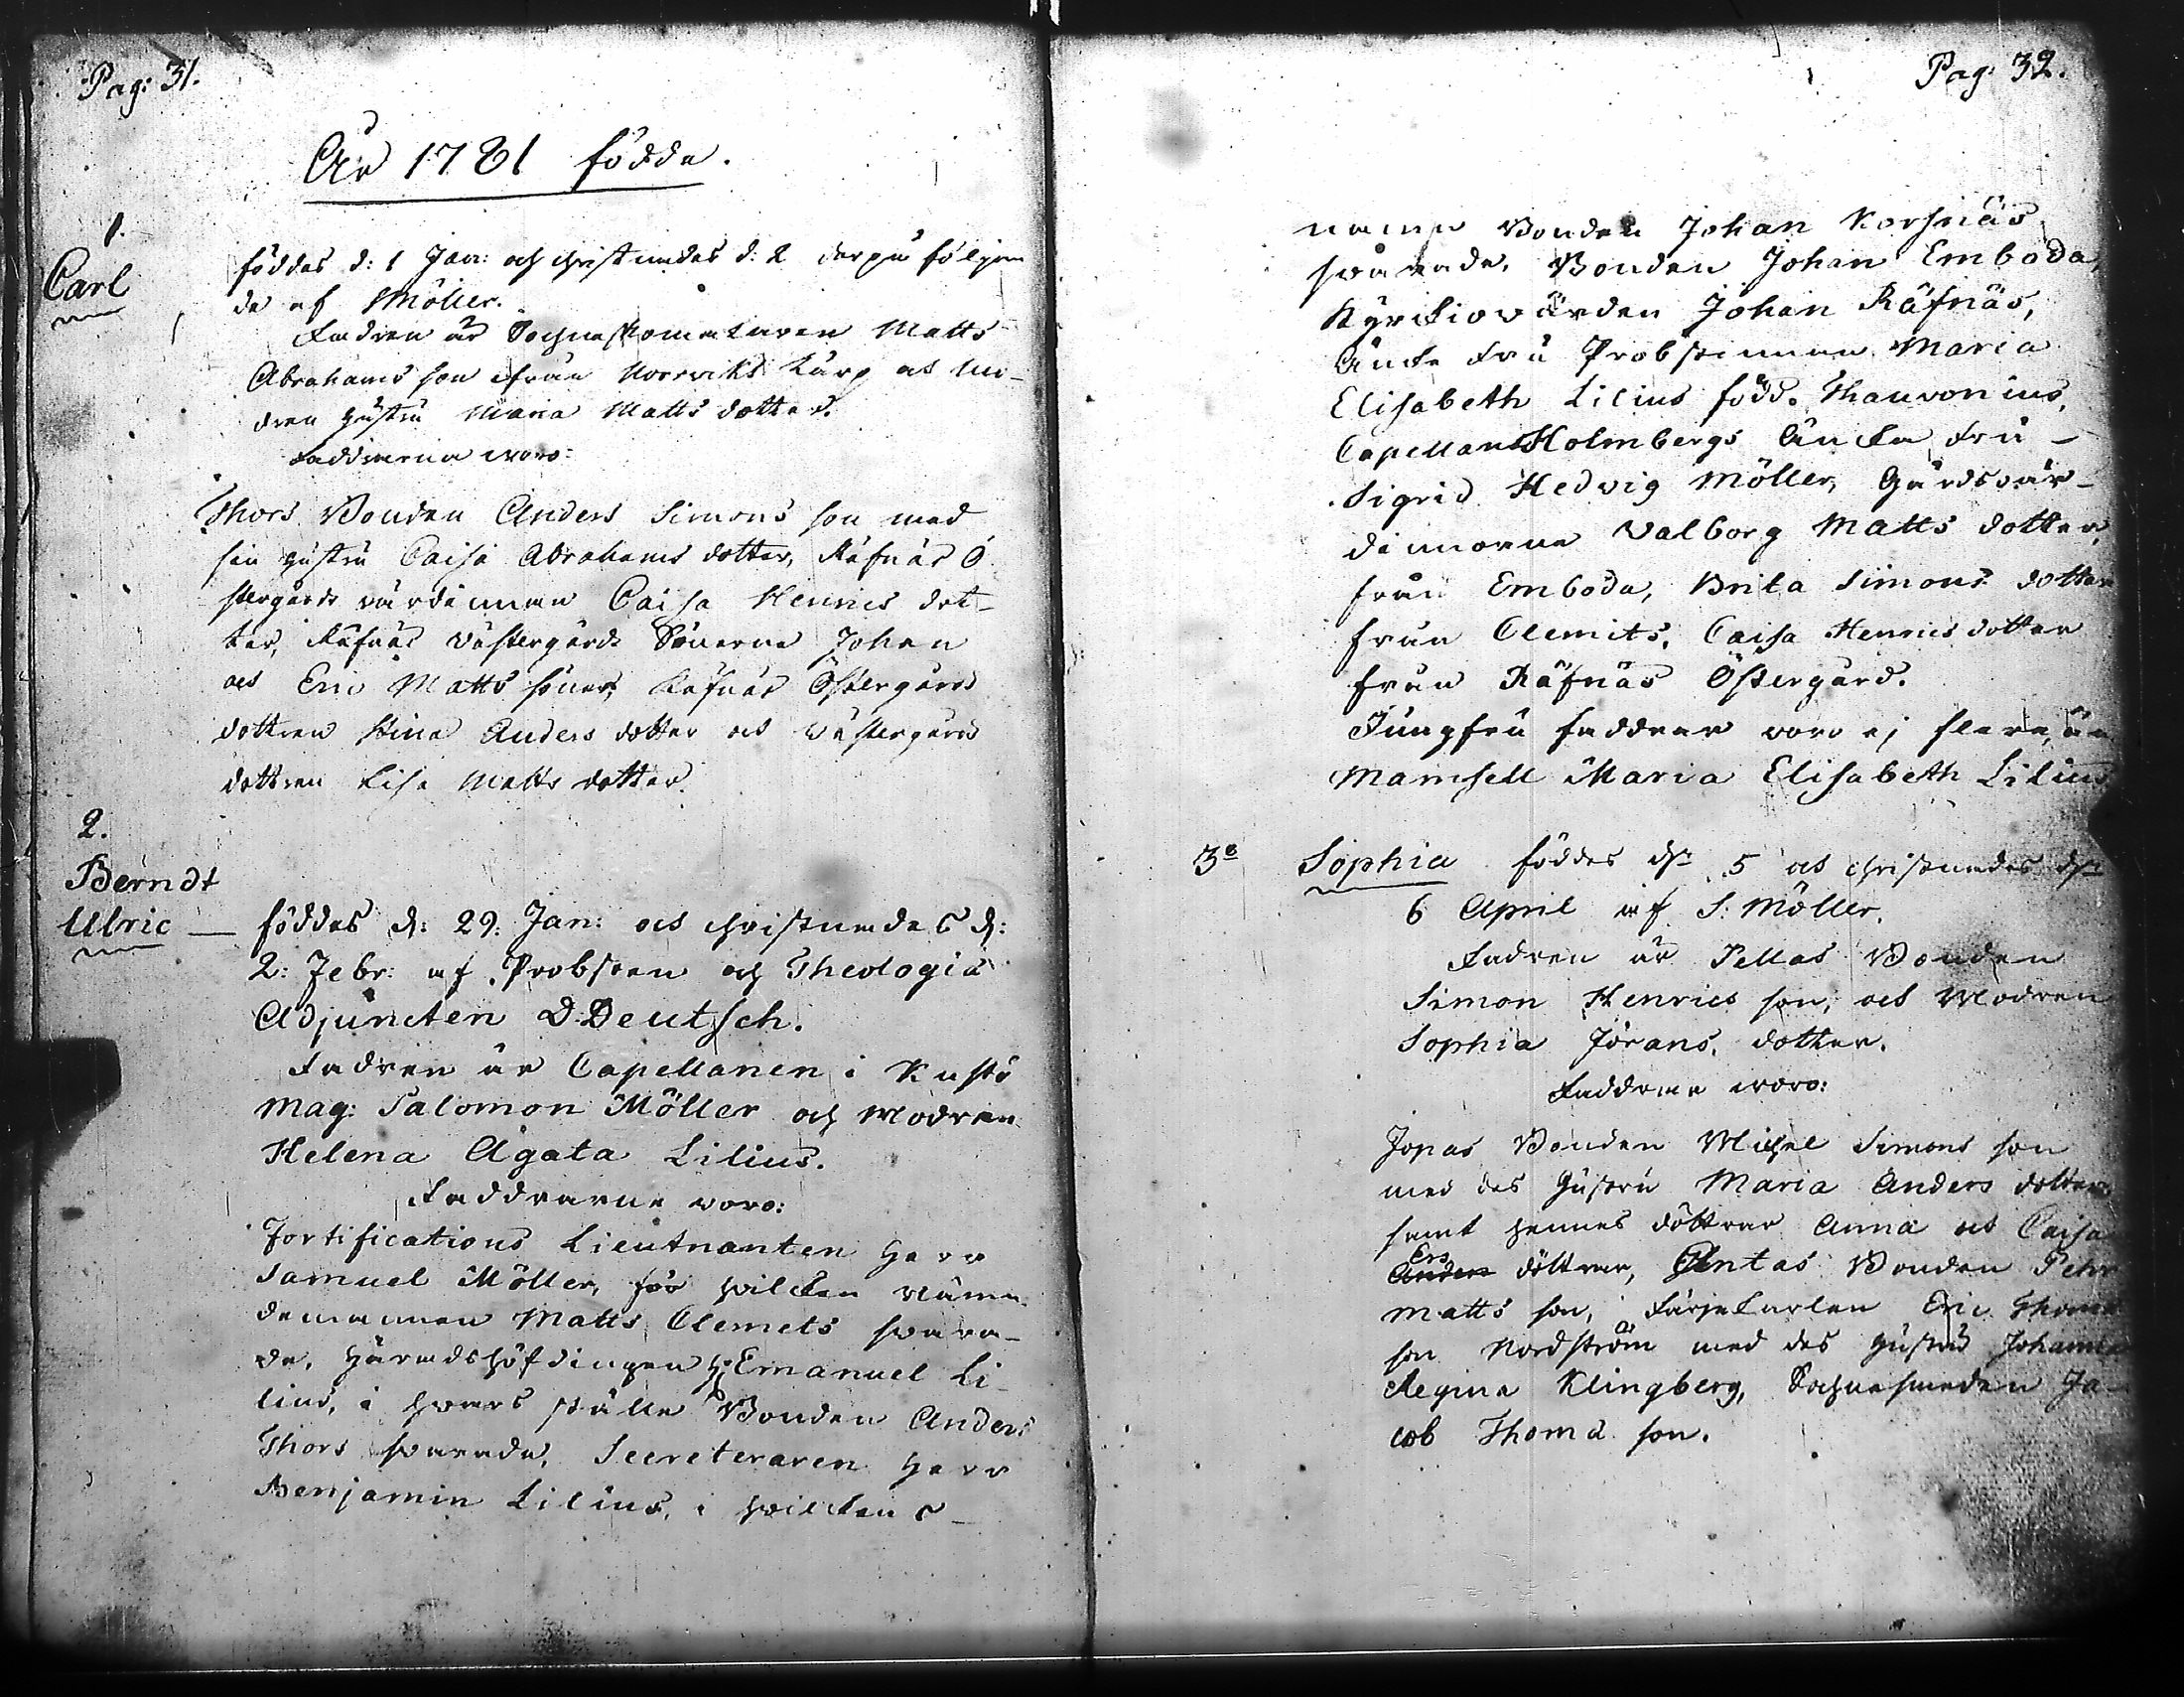 Pag: 31.
År 1781 födde.
1.
Carl
föddes d: 1 Jan: och christnades d: 2 derpå följan
de af Möller.
Fadren är Sochneskomakaren Matts
Abrahams son ifrån Norrviks Kärp ock Mo-
dren hustru Maria Matts dotter.
Faddrarna woro:
Thors Bonden Anders Simons son med
sin hustru Caisa Abrahams dotter, Räfnäs Ö
stergårds värdinnan Caisa Henrics dot-
ter, Räfnäs Västergårds Sönerna Johan
ock Eric Matts söner, Räfnäs Östergårds
dottren Stina Anders dotter ock Västergårds
dottren Lisa Matts dotter.
2.
Berndt
Ulric — föddes d: 29. Jan: ock christnades d:
2: Febr: af Probsten och Theologiæ
Adjuncten D. Deutsch.
Fadren är Capellanen i Kustö
Mag: Salomon Möller och Modren
Helena Agata Lilius.
Faddrarne woro:
Fortifications Lieutnanten Herr
Samuel Möller, för hvilcken Nämn-
demannen Matts Clemets svara-
de, Häradshöfdingen H: Emanuel Li-
lius, i hvars ställe Bonden Anders
Thors svarade, Secreteraren Herr
Benjamin Lilius, i hvilckens
Pag: 32.
namn Bonden Johan Korsnäs
svarade, Bonden Johan Emboda,
Kyrkiovärden Johan Räfnäs,
Änke Fru Probstinnan Maria
Elisabeth Lilius född Thauvonius,
Capellans Holmbergs Äncka Fru
Sigrid Hedvig Möller, Gårdsvär-
dinnorna Valborg Matts dotter,
från Emboda, Brita Simons dotter
från Clemits, Caisa Henrics dotter
från Räfnäs Östergård.
Jungfru faddrar woro ej flere, än
Mamsell Maria Elisabeth Lilius
3º Sophia föddes d. 5 ock christnades d.
6 April af S: Möller.
Fadren är Pellas Bonden
Simon Henrics son, ock Modren
Sophia Jörans dotter.
Faddrarne woro:
Jopas Bonden Michel Simons son
med des hustru Maria Anders dotter
samt hennes döttrar Anna ock Caisa
Ers
Anders döttrar, Gentas Bonden Pehr
Matts son, Färjekarlen Eric Thomæ
son Nordström med des hustru Johanna
Regina Klingberg, Sochnesmeden Ja-
cob Thomæ son.